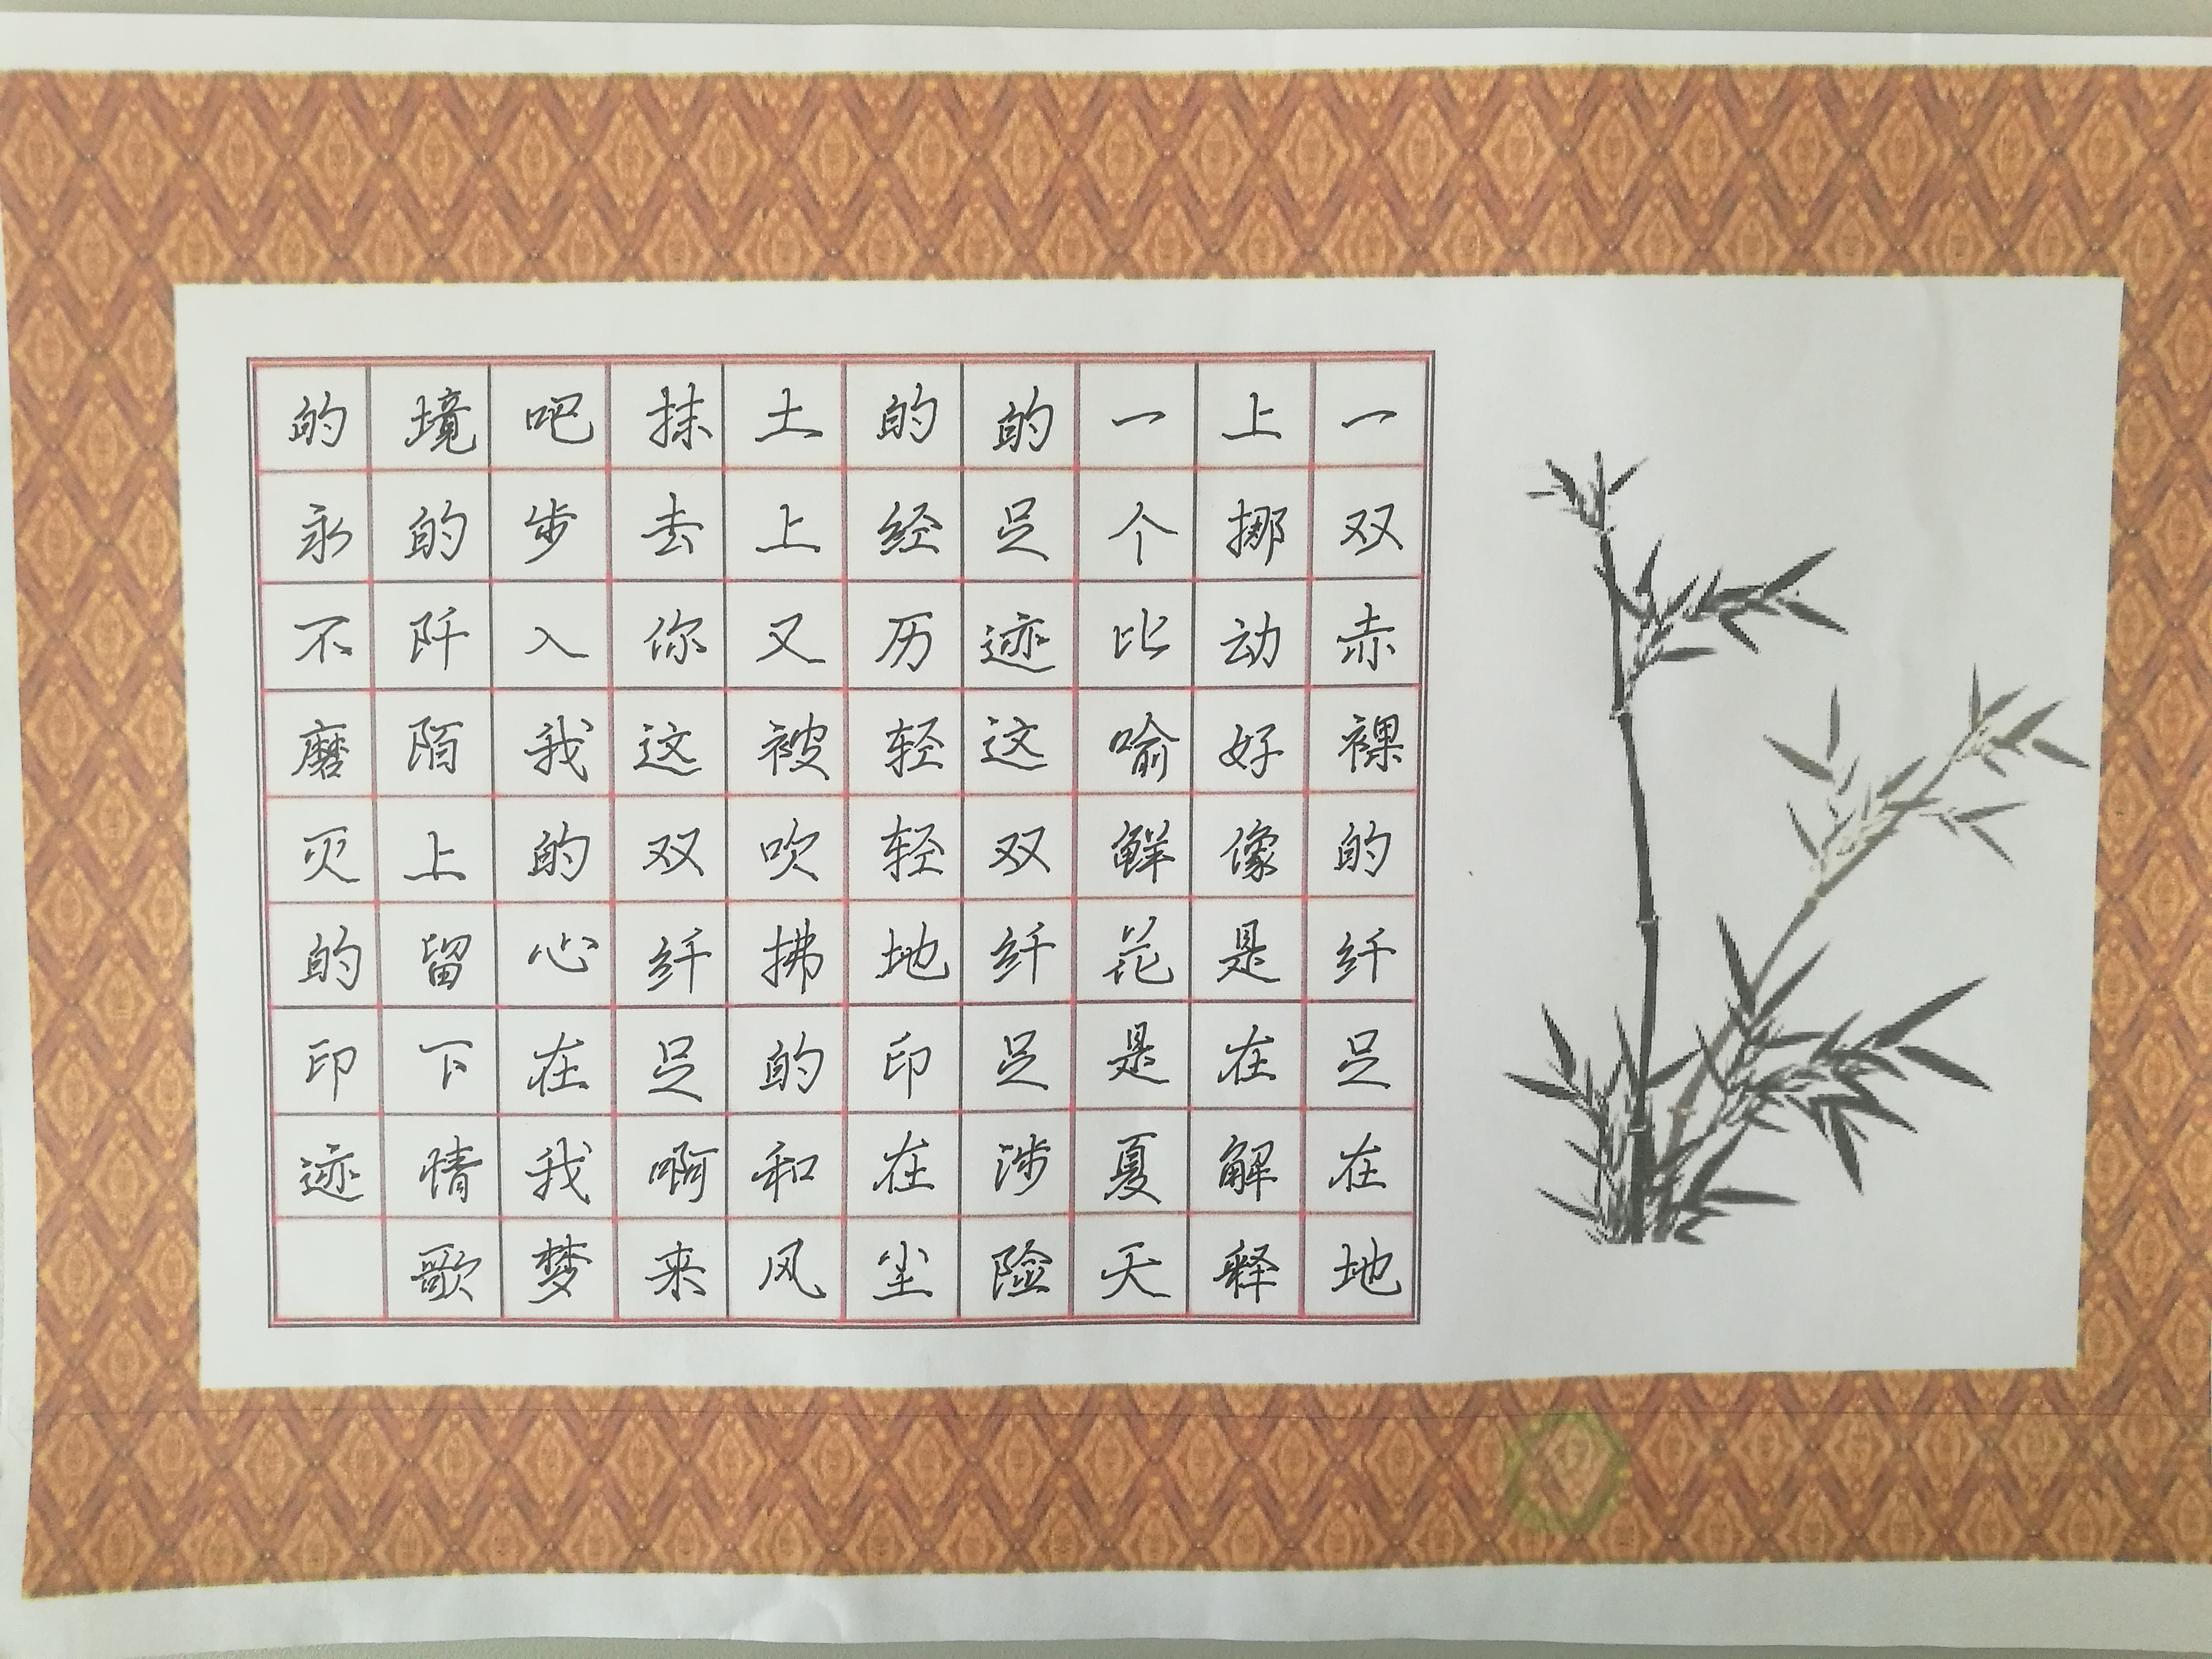 一双赤裸的纤足在地
上挪动好像是在解释
一个比喻鲜花是夏天
的足迹这双纤足涉险
的经历轻轻地印在尘
土上又被吹拂的和风
抹去你这双纤足啊来
吧步入我的心在我梦
境的阡陌上留下情歌
的永不磨灭的印迹